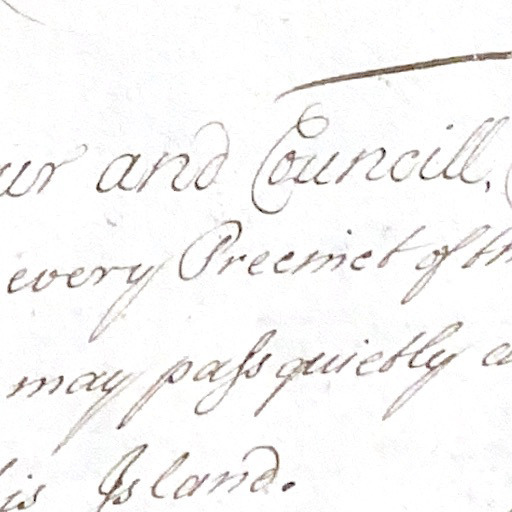 ur and Councill,
every Precinct of th
may pass quietly a
his Island.